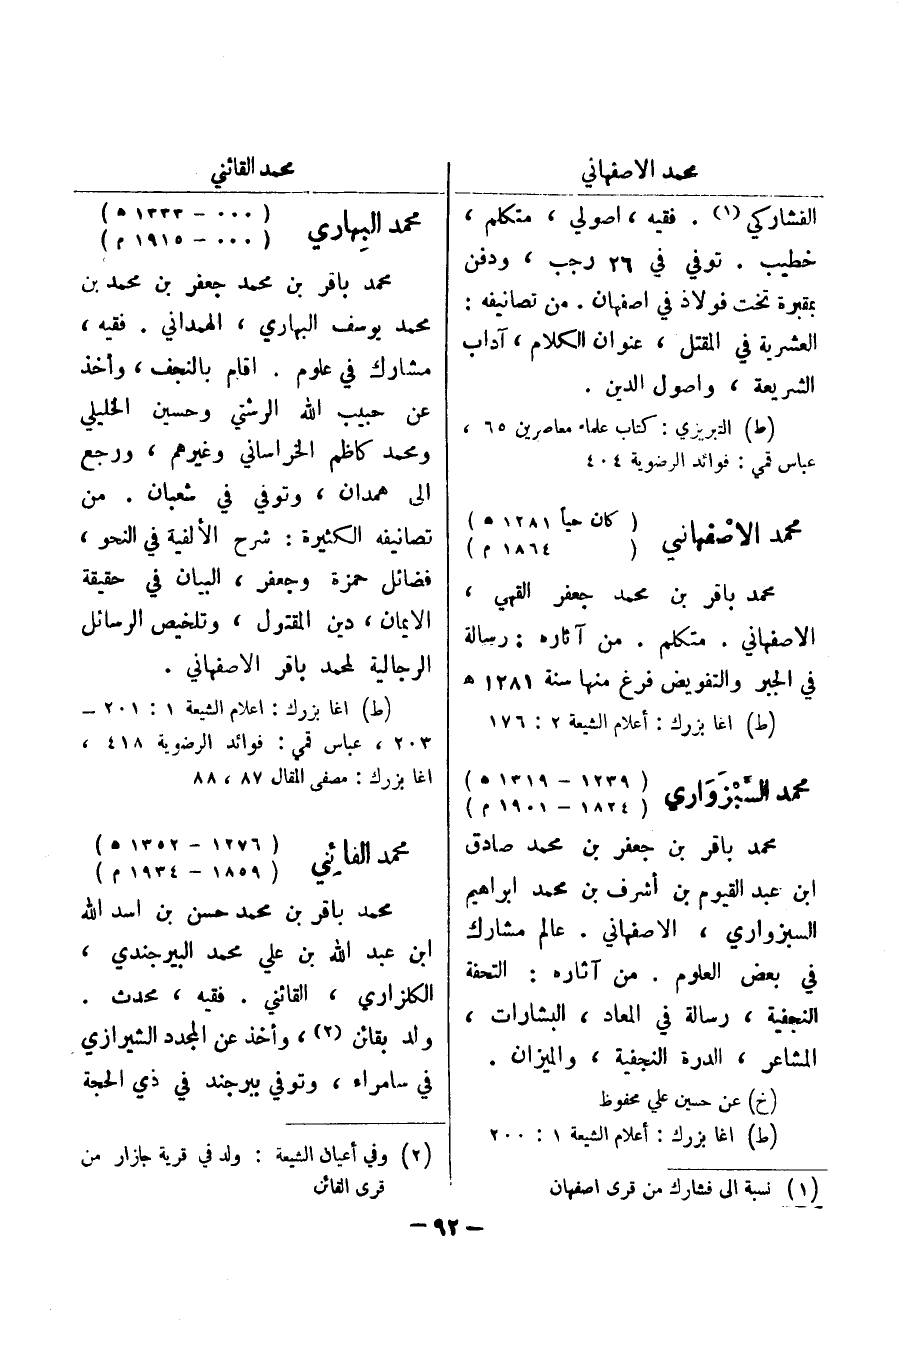 محمد الاصفهاني
الفشاركي (١) . فقيه ، اصولي ، متكلم ،
خطيب . توفي في ٢٦ رجب ، ودفن
بمقبرة تخت فولاذ في اصفهان . من تصانيفه :
العشرية في المقتل ، عنوان الكلام ، آداب
الشريعة ، واصول الدين .
(ط) التبريزي : كتاب علماء معاصرين ٦٥ ،
عباس قمي : فوائد الرضوية ٤٠٤
محمد الاصْفهاني ( كان حياً ١٢٨١ ه )
( ١٨٦٤ م )
محمد باقر بن محمد جعفر القهي ،
الاصفهاني . متكلم . من آثاره : رسالة
في الجبر والتفويض فرغ منها سنة ١٢٨١ ه
(ط) اغا بزرك : أعلام الشيعة ٢ : ١٧٦
محمد السَّبْزَوَاري ( ١٢٣٩ – ١٣١٩ ه )
( ١٨٢٤ – ١٩٠١ م )
محمد باقر بن جعفر بن محمد صادق
ابن عبد القيوم بن أشرف بن محمد ابراهيم
السبزواري ، الاصفهاني . عالم مشارك
في بعض العلوم . من آثاره : التحفة
النجفية ، رسالة في المعاد ، البشارات ،
المشاعر ، الدرة النجفية ، والميزان .
(خ) عن حسين علي محفوظ
(ط) اغا بزرك : أعلام الشيعة ١ : ٢٠٠
(١) نسبة الى فشارك من قرى اصفهان
محمد القائني
محمد البِهاري ( ٠٠٠ – ١٣٣٣ ه )
( ٠٠٠ – ١٩١٥ م )
محمد باقر بن محمد جعفر بن محمد بن
محمد يوسف البهاري ، الهمداني . فقيه ،
مشارك في علوم . اقام بالنجف ، وأخذ
عن حبيب الله الرشتي وحسين الخليلي
ومحمد كاظم الخراساني وغيرهم ، ورجع
الى همدان ، وتوفي في شعبان . من
تصانيفه الكثيرة : شرح الألفية في النحو ،
فضائل حمزة وجعفر ، البيان في حقيقة
الايمان ، دين المقتول ، وتلخيص الرسائل
الرجالية لمحمد باقر الاصفهاني .
(ط) اغا بزرك : اعلام الشيعة ١ : ٢٠١ –
٢٠٣ ، عباس قمي : فوائد الرضوية ٤١٨ ،
اغا بزرك : مصفى المقال ٨٧ ، ٨٨
محمد القائِني ( ١٢٧٦ – ١٣٥٢ ه )
( ١٨٥٩ – ١٩٣٤ م )
محمد باقر بن محمد حسن بن اسد الله
ابن عبد الله بن علي محمد البيرجندي ،
الكلزاري ، القائني . فقيه ، محدث .
ولد بقائن (٢) ، وأخذ عن المجدد الشيرازي
في سامراء ، وتوفي ببرجند في ذي الحجة
(٢) وفي أعيان الشيعة : ولد في قرية جازار من
قرى القائن
– ٩٢ –